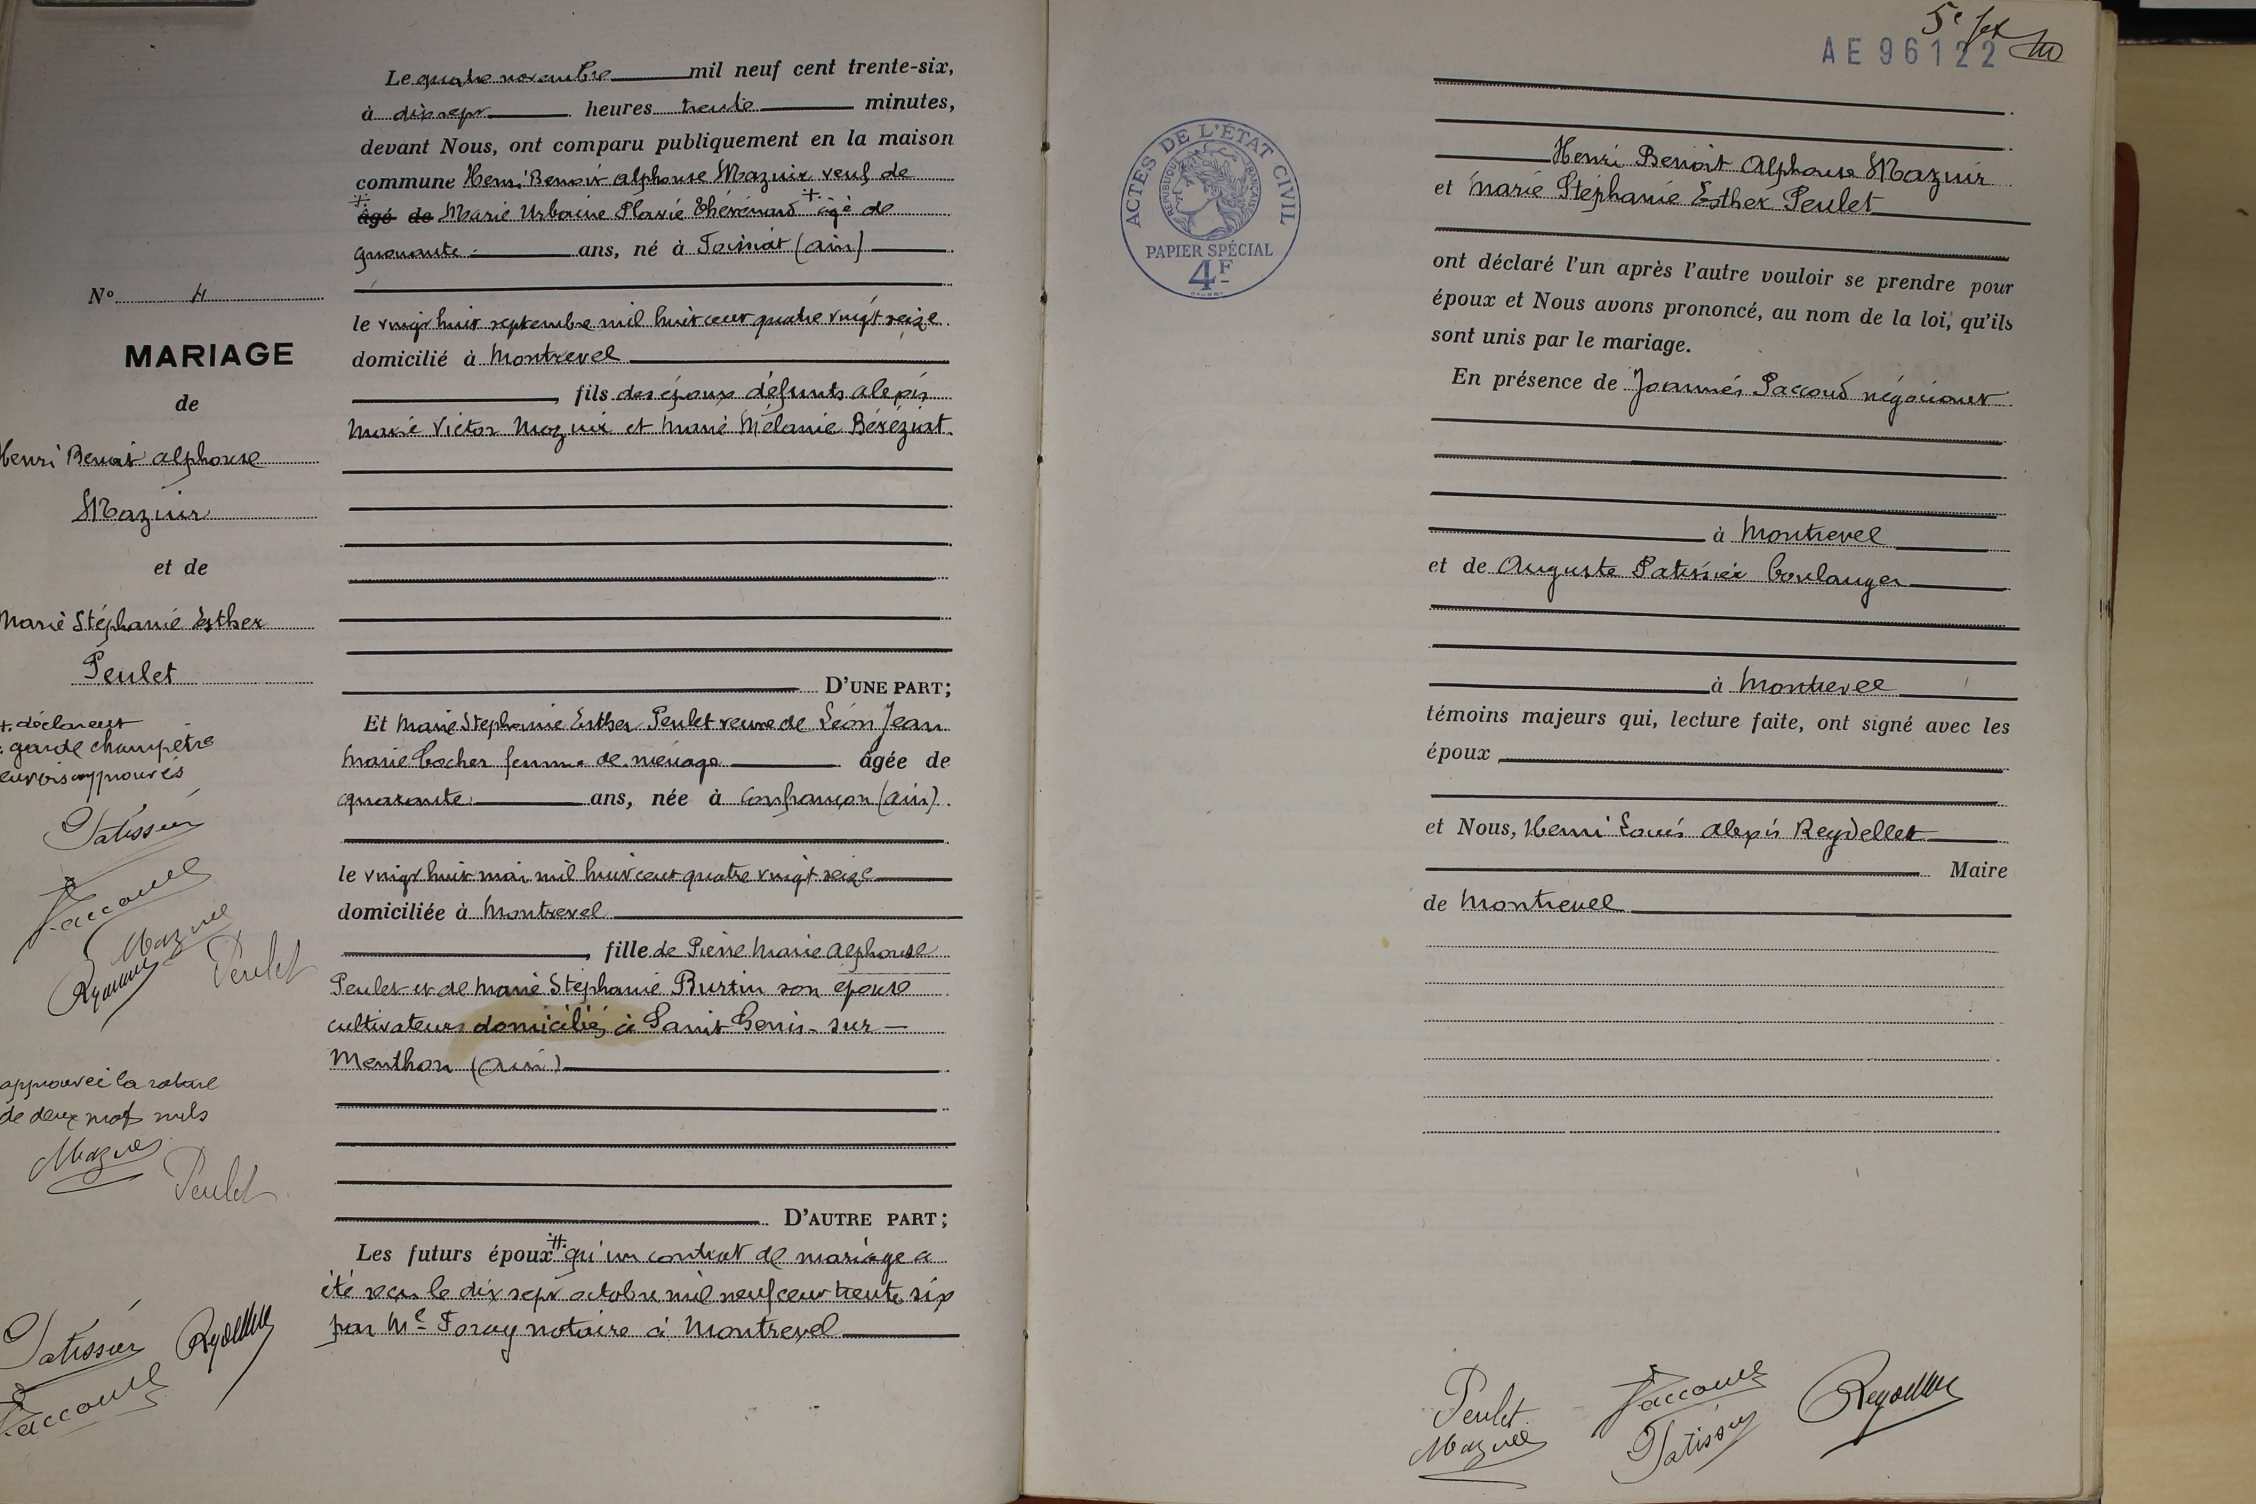 Le quatre novembre mil neuf cent trente-six,
à dix sept heures trente minutes,
devant Nous, ont comparu publiquement en la maison
commune Henri Benoit Alphonse Mazuir veuf de
+ âgé de Marie Urbaine Flavie Thévenard + âgé de
quarante ans, né à Foissiat (Ain)
le vingt huit septembre mil huit cent quatre vingt seize
domicilié à Montrevel
, fils des époux défunts Alexis
Marie Victor Mazuir et Marie Mélanie Béréziat
D'UNE PART;
Et Marie Stéphanie Esther Peulet veuve de Léon Jean
Marie Cocher femme de ménage âgée de
quarante ans, née à Confrançon (Ain).
le vingt huit mai mil huit cent quatre vingt seize
domiciliée à Montrevel
, fille de Pierre Marie Alphonse
Peulet et de Marie Stéphanie Burtin son épouse
cultivateurs domiciliés à Saint Genis-sur-
Menthon (Ain)
D'AUTRE PART;
Les futurs époux # qu'un contrat de mariage a
été reçu le dix sept octobre mil neuf cent trente six
par Me Foray notaire à Montrevel
No 4
MARIAGE
de
Henri Benoit Alphonse
Mazuir
et de
Marie Stéphanie Esther
Peulet
+ déclarent
: garde champêtre
renvois approuvés
Patissier
Paccoud
Mazuir
Peulet
approuvée la rature
de deux mots nuls
Mazuir
Peulet
Patissier Reydellet
Paccoud
5e fet
AE 96122
ACTES DE L'ÉTAT CIVIL
RÉPUBLIQUE FRANÇAISE
PAPIER SPÉCIAL
4F
Henri Benoit Alphonse Mazuir
et Marie Stéphanie Esther Peulet
ont déclaré l'un après l'autre vouloir se prendre pour
époux et Nous avons prononcé, au nom de la loi, qu'ils
sont unis par le mariage.
En présence de Joannès Paccoud négociant
à Montrevel
et de Auguste Patissier boulanger
à Montrevel
témoins majeurs qui, lecture faite, ont signé avec les
époux
et Nous, Henri Louis Alexis Reydellet
Maire
de Montrevel
Peulet Paccoud Reydellet
Mazuir Patissier